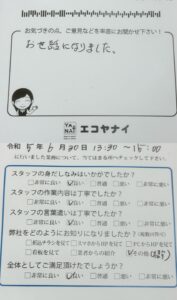 お気づきの点、ご意見などを率直にお聞かせ下さい!
お世話になりました。
エコヤナイ
令和 5年 6月 30日 13:30 ~ 15:00
にわいました業務について、当てはまる所へチェックして下さい。
スタッフの身だしなみはいかがでしたか?
□非常に良い □良い □普通 □悪い □非常に悪い
スタッフの作業内容は丁寧でしたか?
□非常に良い □良い □普通 □悪い □非常に悪い
スタッフの言葉遣いは丁寧でしたか?
□非常に良い □良い □普通 □悪い □非常に悪い
弊社をどのようにお知りになりましたか?
□折込チラシを見て □スマホからHPを見て □PCからHPを見て
□看板を見て □業者からの紹介 その他
全体としてご満足頂けたでしょうか?
□非常に良い □良い □普通 □悪い □非常に悪い